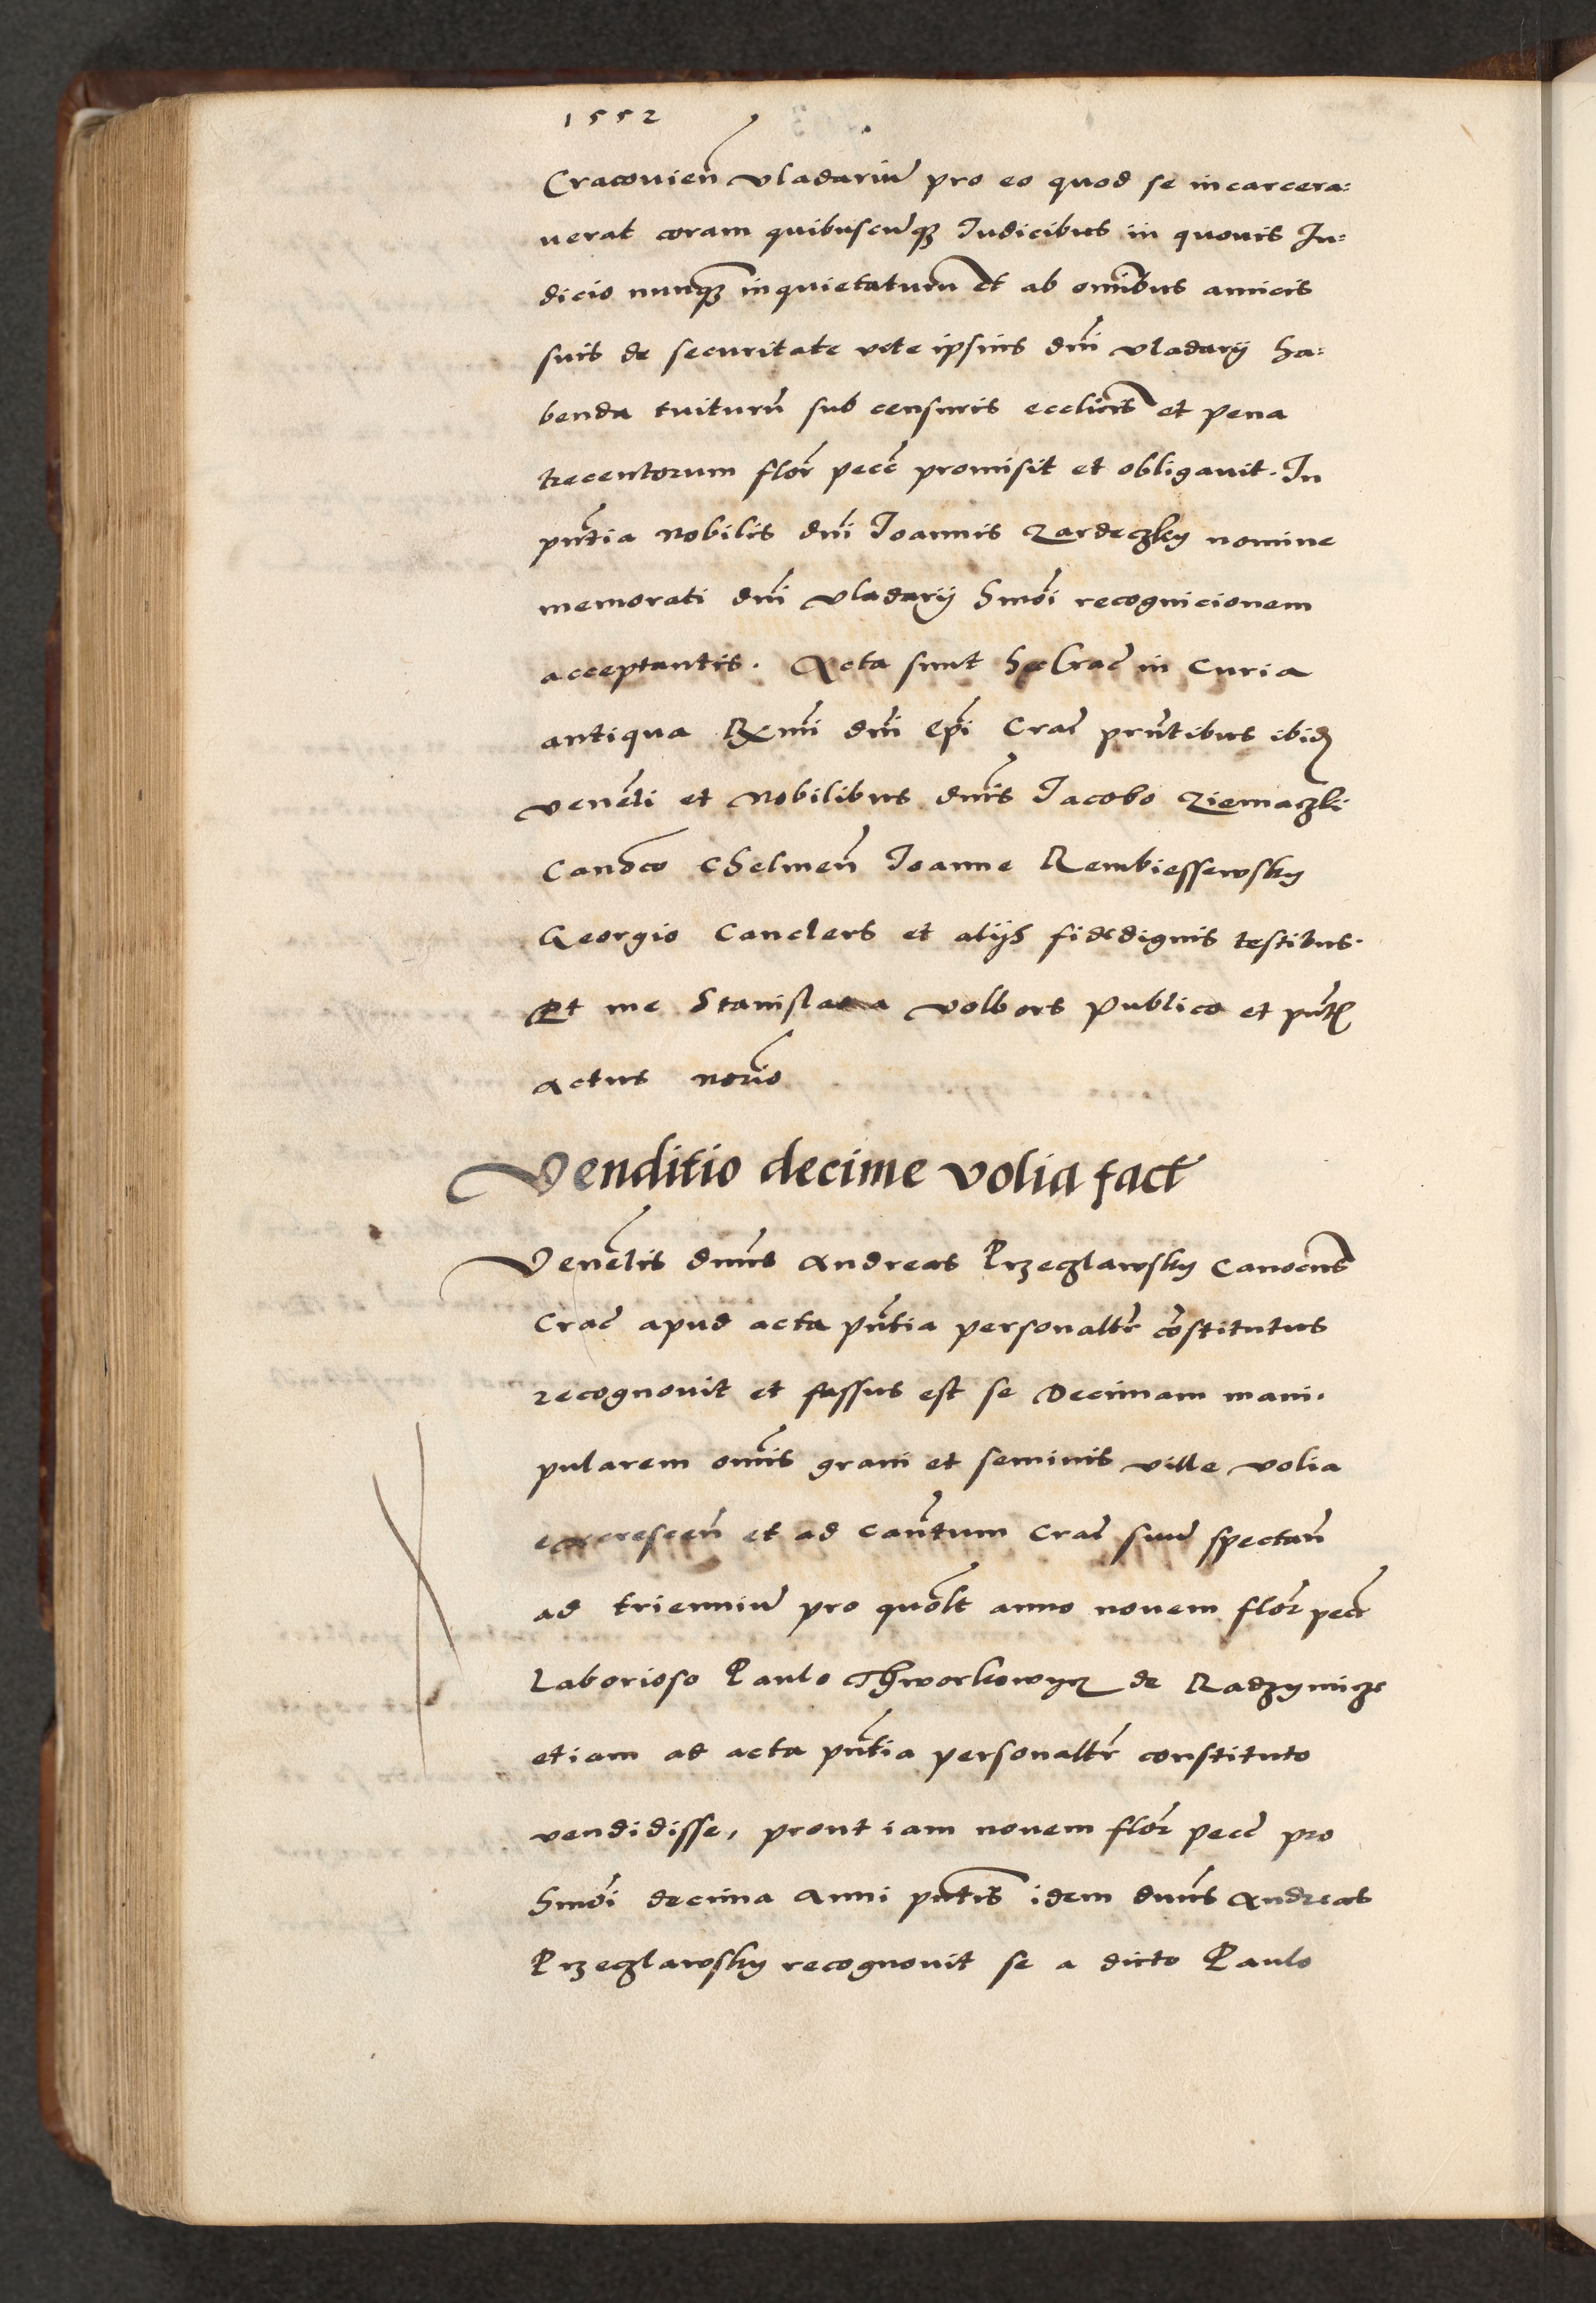 1552
Cracovień vladariū pro eo quod se incarcera=
uerat coram quibuscūqꝫ Iudicibus in quouis Iu=
dicio nunqꝫ inquietaturū et ab omībus amicis
suis de securitate vite ipsius dn̄i vladarij ha=
benda tuiturū sub censuris eccl̄icis et pena
trecentorum flor̄ pecc̄ promisit et obligauit. In
pn̄tia Nobilis dn̄i Ioannis Zardeczky nomine
memorati dn̄i vladarij hmōi recognicionem
acceptantis. Acta sunt hec Crac̄ in Curia
antiqua Rx̄mi dn̄i Ep̄i Crac̄ pn̄tibus ibid̄
veneł̄i et Nobilibus dn̄is Iacobo Ziemaczki
Canōco Chelmeń Ioanne Rembiessewsky
Georgio Canclers et alijs fidedignis testibus.
Et me Stanislao a volbors Publico et pn̄t̄
actus nor̄io
Venditio decime volia fact̄
Veneł̄is dn̄us Andreas Przeczlawsky Canōcus
Crac̄ apud acta pn̄tia personałr̄ cōstitutus
recognouit et fassus est se Decimam mani.
pularem omīs grani et seminis ville volia
excrescen̄ et ad can̄tum Crac̄ suū spectan̄
ad trienniū pro quol̄t anno novem flor̄ pecc̄
Laborioso Paulo Thworkowycz de Radzymicze
etiam ad acta pn̄tia personałr̄ constituto
vendidisse, prout iam novem flor̄ pecc̄ pro
hmōi decima Anni pn̄tis idem dn̄us Andreas
Przeczlawsky recognouit se a dicto Paulo